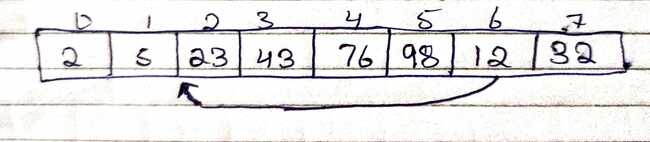 0 1 2 3 4 5 6 7
2 5 23 43 76 98 12 32